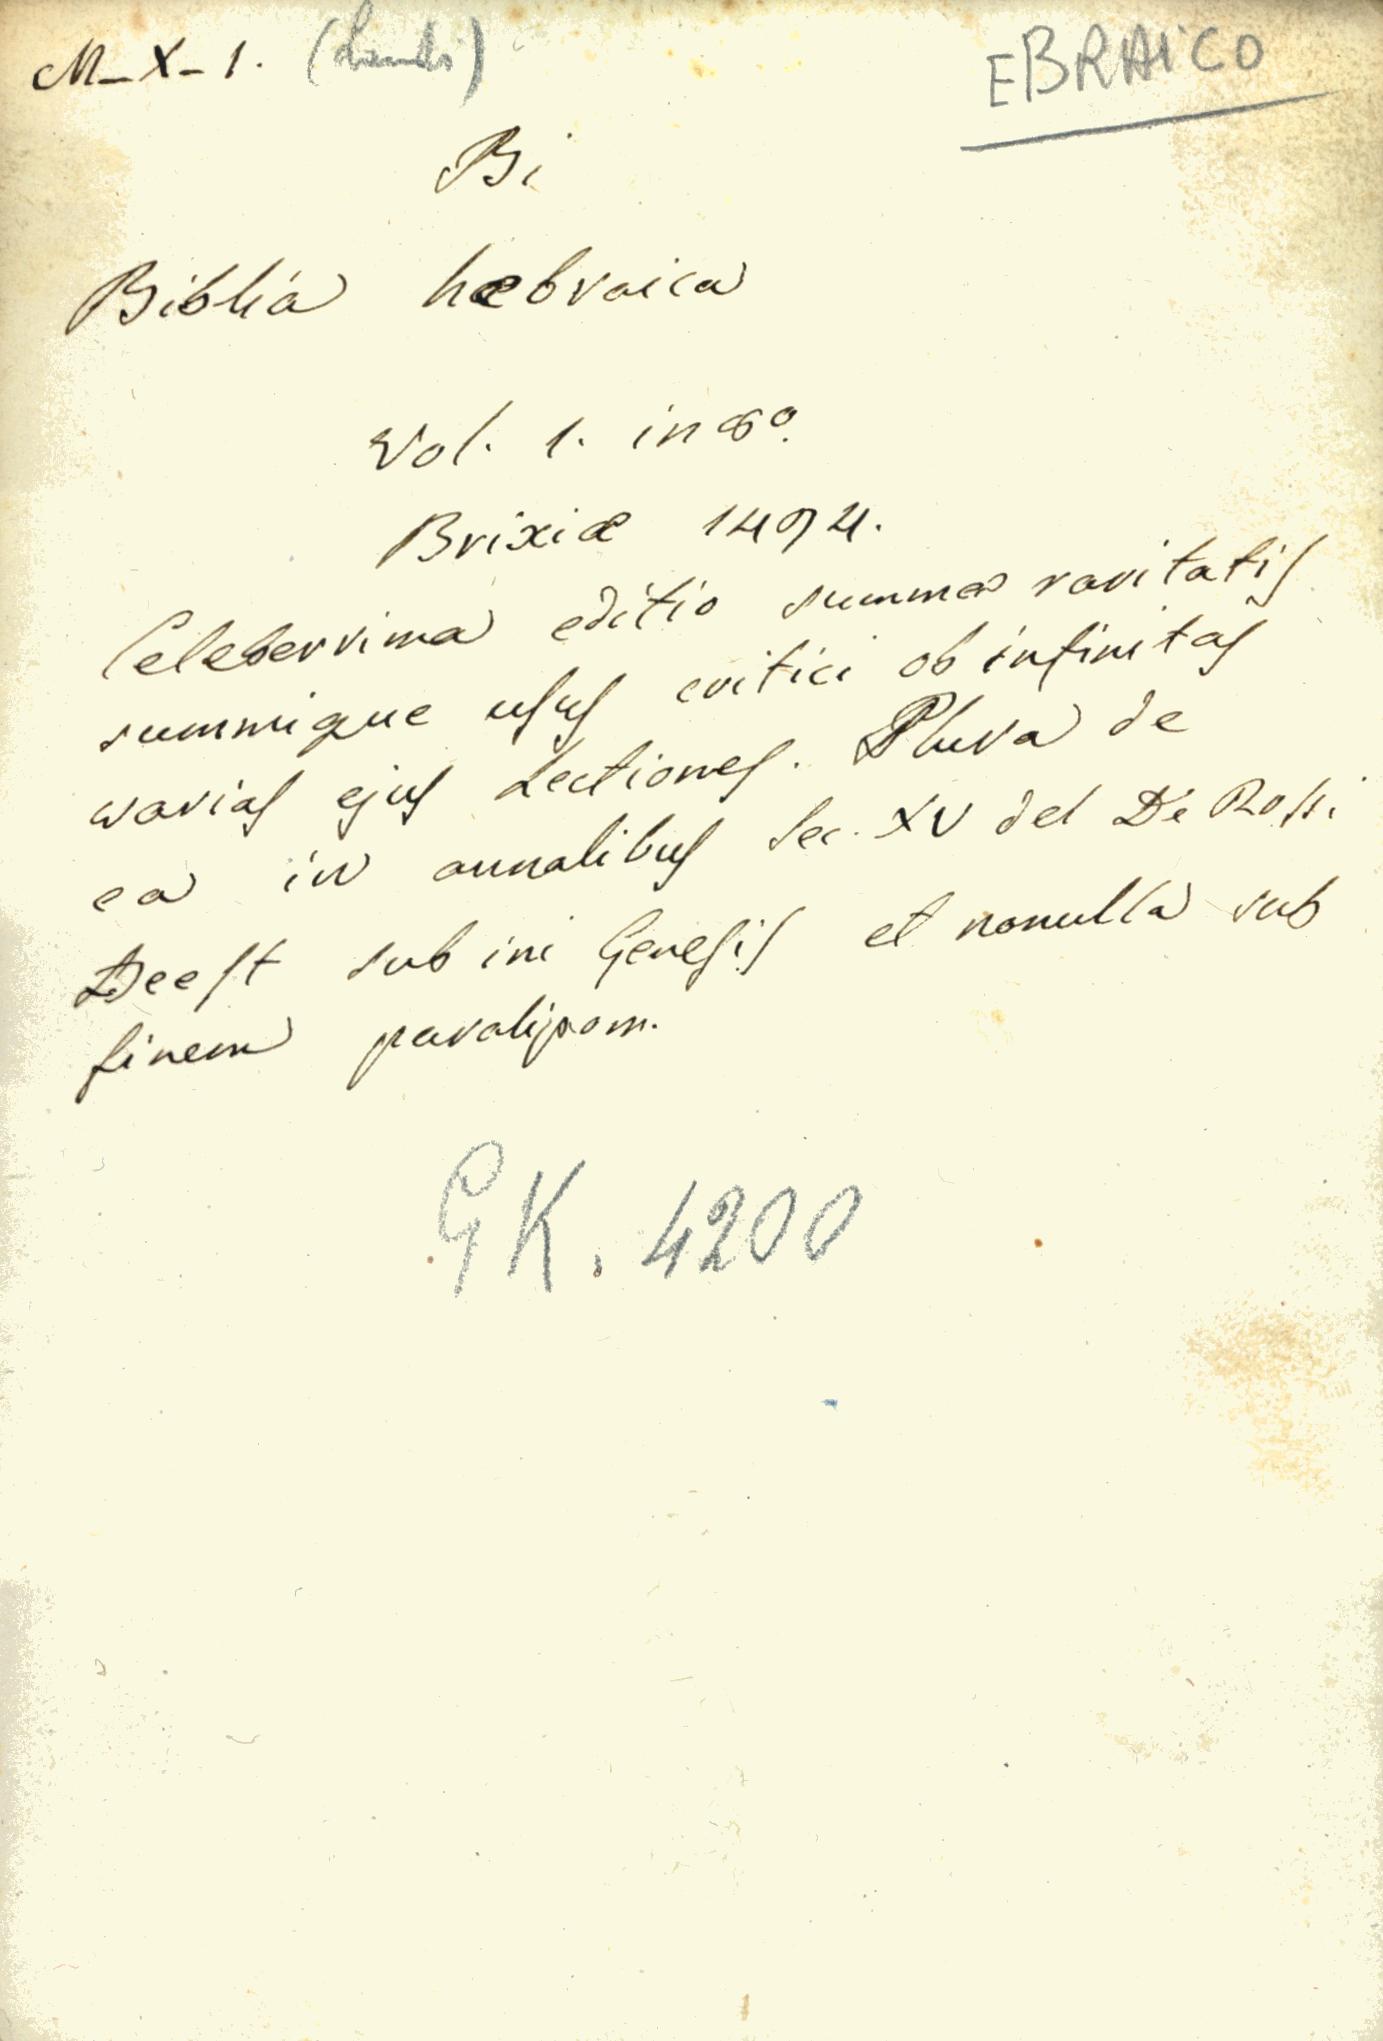 M-X-1. EBRAICO
Bi
Biblia hæbraica
Vol. 1. in 8º.
Brixiæ 1494.
Celeberrima editio summæ raritatis
summique usus critici ob infinitas
varias ejus Lectiones. Plura de
ea in annalibus Sec. XV del De Rossi
Deest sub ini Genesis et nonulla sub
finem paralipom.
GK. 4200